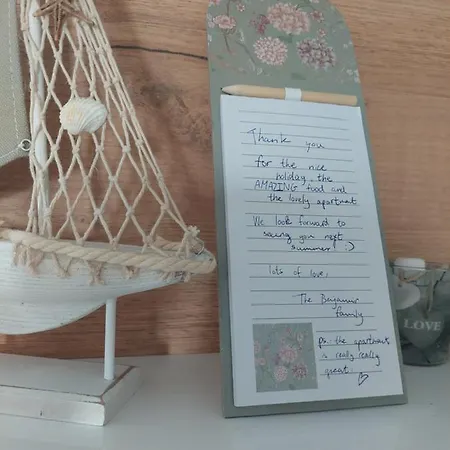 Thank you
for the nice
holiday, the
AMAZING food and
the lovely apartment
We look forward to
seeing you next
summer! :)
lots of love,
The Benjamin
family
ps. the apartment
is really really
great.
LOVE